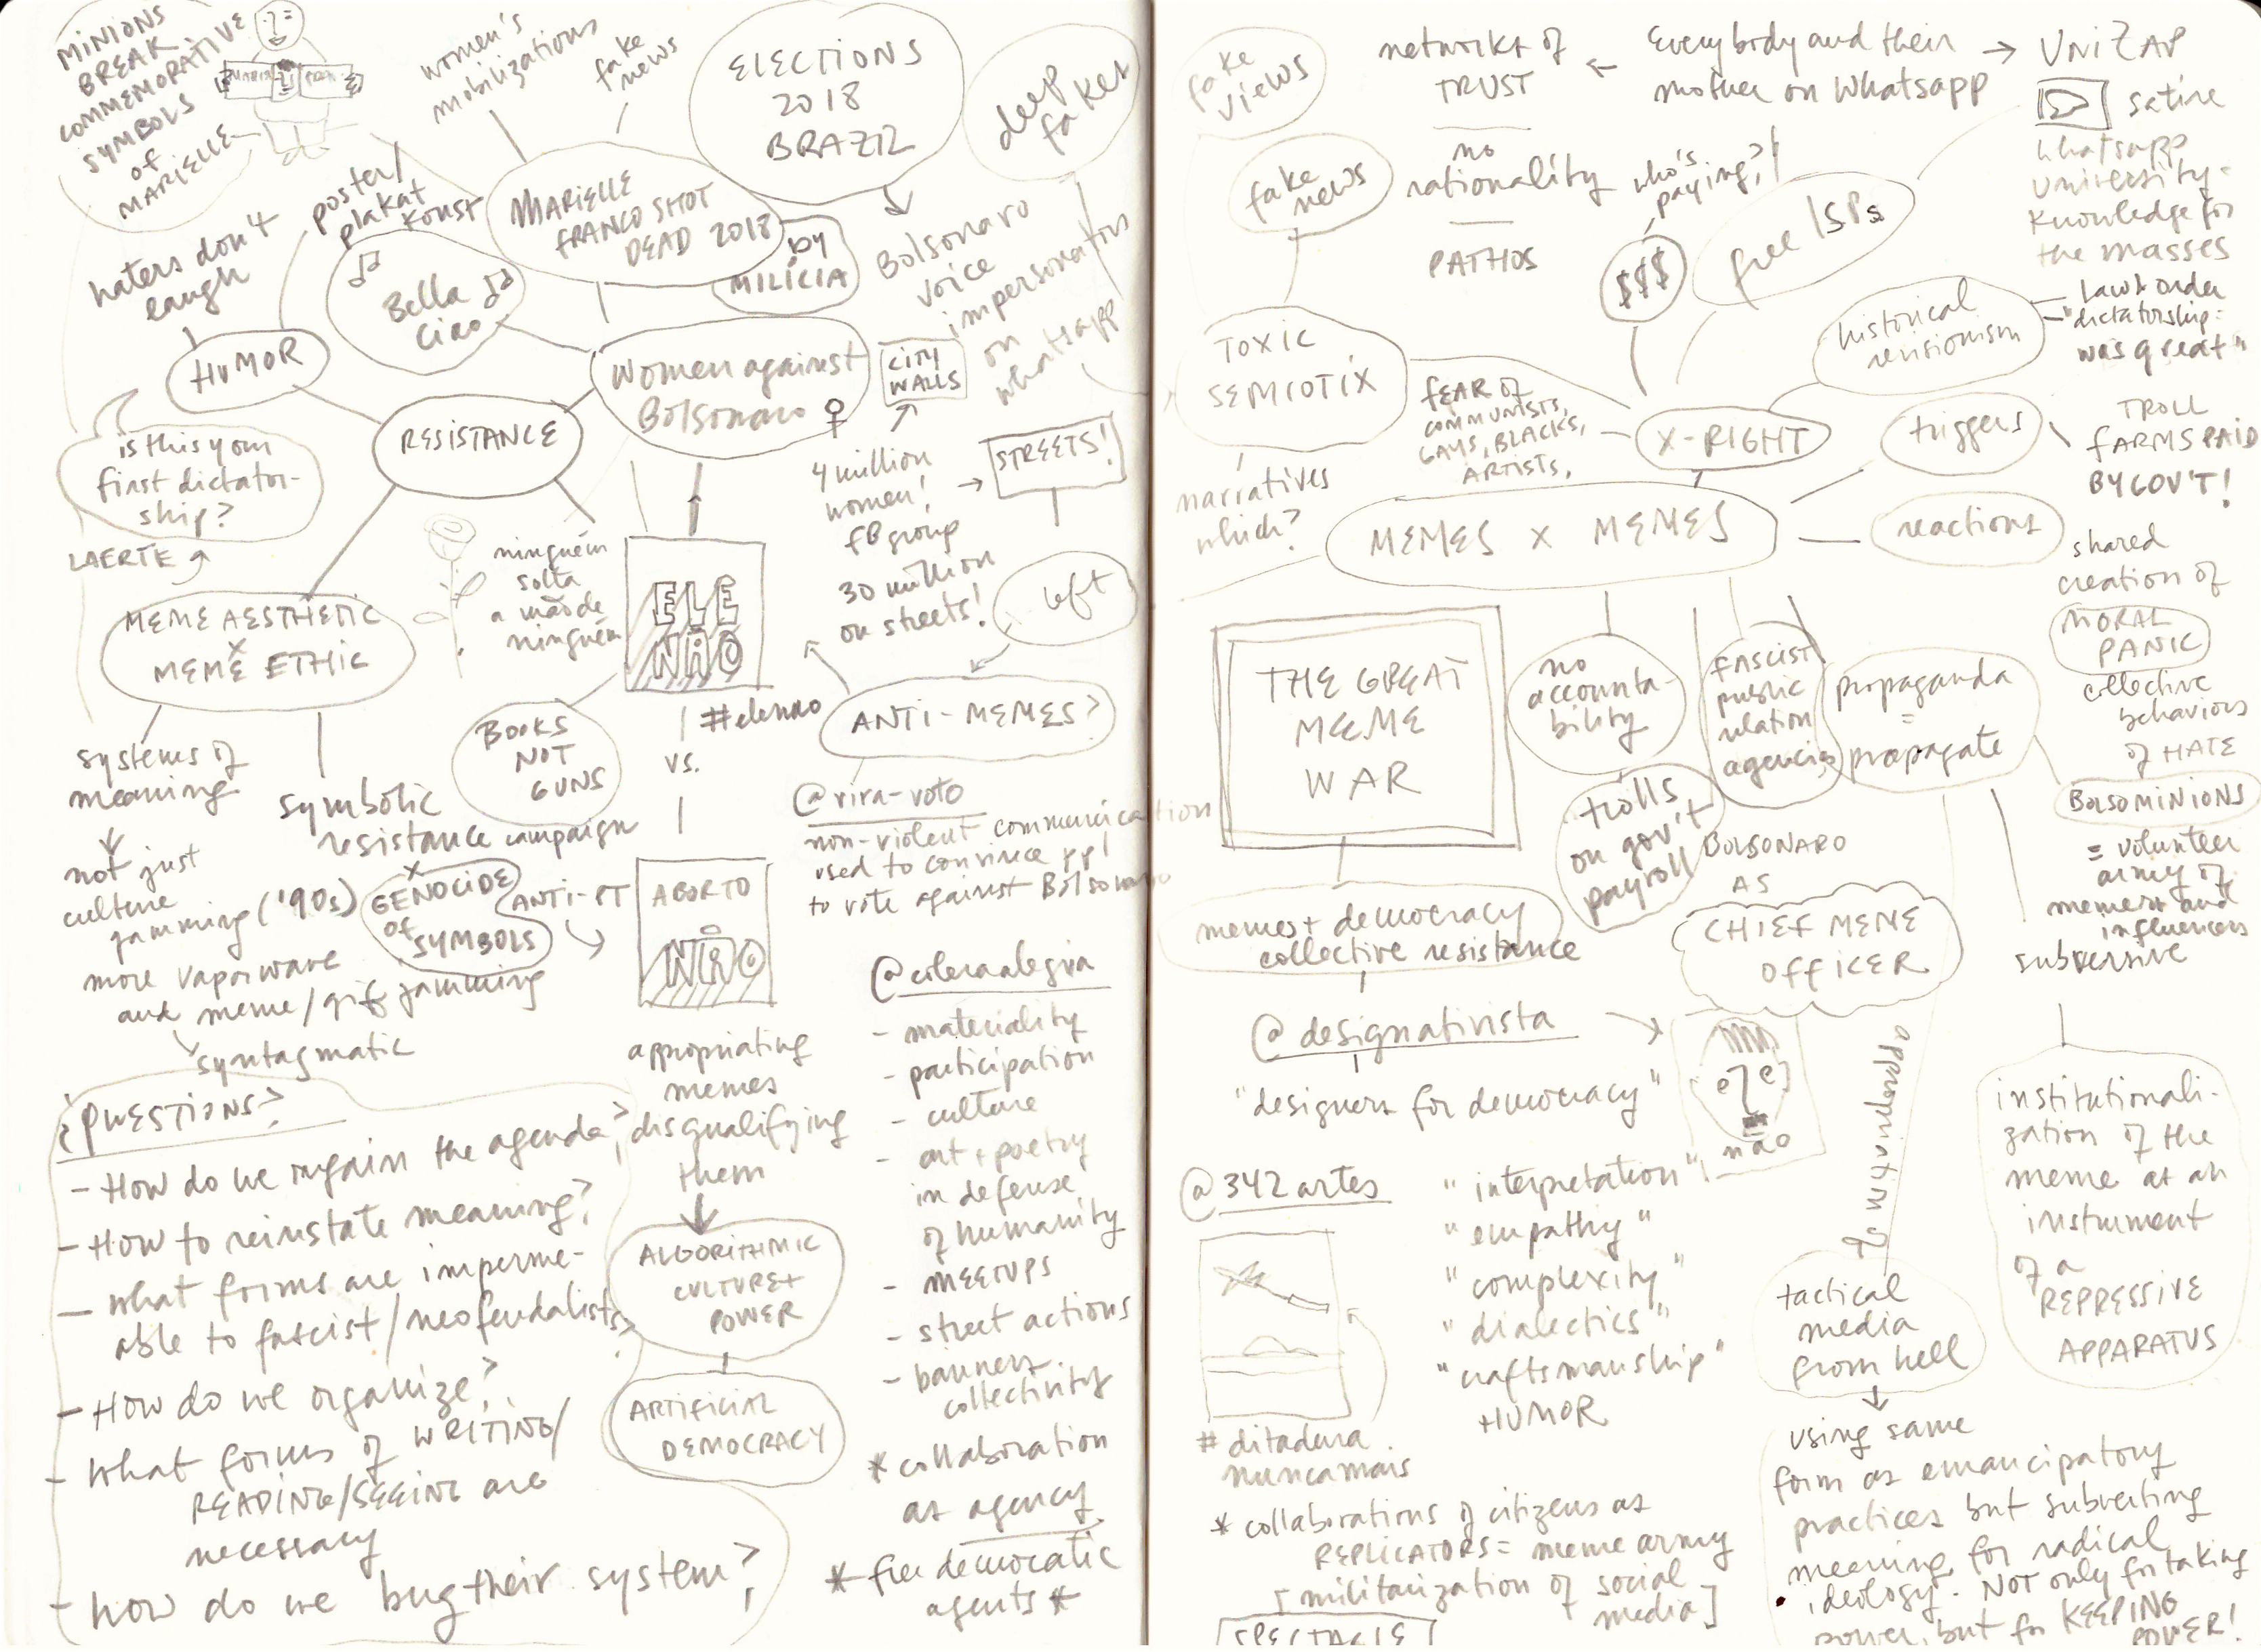 MINIONS
BREAK
COMMEMORATIVE
SYMBOLS
of
MARIELLE
women's
mobilizations
fake
news
ELECTIONS
2018
BRAZIL
deep
fakes
haters don't
laugh
poster/
plakat
konst
MARIELLE
FRANCO SHOT
DEAD 2018
by
MILÍCIA
Bolsonaro
voice
impersonators
on
whatsapp
HUMOR
Bella
Ciao
RESISTANCE
women against
Bolsonaro ♀
CITY
WALLS
STREETS!
4 million
women!
FB group
30 million
on streets!
left
is this your
first dictator-
ship?
LAERTE
MEME AESTHETIC
x
MEME ETHIC
ninguém
solta
a mão de
ninguém
ELE
NÃO
#elenao
ANTI-MEMES?
systems of
meaning
not just
culture
jamming ('90s)
more vaporware
and meme/gif jamming
syntagmatic
symbolic
resistance campaign
x
GENOCIDE
of
SYMBOLS
BOOKS
NOT
GUNS
vs.
ANTI-PT
ABORTO
NÃO
@vira-voto
non-violent communication
used to convince ppl
to vote against Bolsonaro
appropriating
memes
disqualifying
them
ALGORITHMIC
CULTURE +
POWER
ARTIFICIAL
DEMOCRACY
@coleraalegria
- materiality
- participation
- culture
- art + poetry
in defense
of humanity
- MEETUPS
- street actions
- banners
collectivity
* collaboration
as agency
* free democratic
agents *
¿QUESTIONS?
- How do we regain the agenda?
- How to reinstate meaning?
- what forms are imperme-
able to fascist/neofeudalists?
- How do we organize?
- what forms of WRITING/
READING/SEEING are
necessary
- how do we bug their system?
fake
views
networks of
TRUST
no
rationality
PATHOS
Everybody and their
mother on Whatsapp
UNIZAP
satire
whatsapp
university =
knowledge for
the masses
fake
news
who's
paying?
$$$
free ISPs
historical
revisionism
- Law & order
- "dictatorship:
was great"
TOXIC
SEMIOTIX
FEAR of
COMMUNISTS,
GAYS, BLACKS,
ARTISTS,
X-RIGHT
triggers
TROLL
FARMS PAID
BY GOV'T!
narratives
which?
MEMES X MEMES
reactions
shared
creation of
MORAL
PANIC
collective
behaviors
of HATE
THE GREAT
MEME
WAR
no
accounta-
bility
fascist
public
relation
agencies
propaganda
=
propagate
trolls
on gov't
payroll
BOLSOMINIONS
= volunteer
army of
memers and
influencers
BOLSONARO
AS
CHIEF MEME
OFFICER
memes + democracy
collective resistance
subversive
@designativista
"designers for democracy"
não
appropriation of
@342artes
"interpretation"
"empathy"
"complexity"
"dialectics"
"craftsmanship"
+HUMOR
institutionali-
zation of the
meme as an
instrument
of a
REPRESSIVE
APPARATUS
tactical
media
from hell
# ditadura
nuncamais
using same
form as emancipatory
practices but subverting
meaning for radical
ideology. NOT only for taking
power, but for KEEPING
POWER!
* collaborations of citizens as
REPLICATORS = meme army
[militarization of social
media]
SPECTACLE